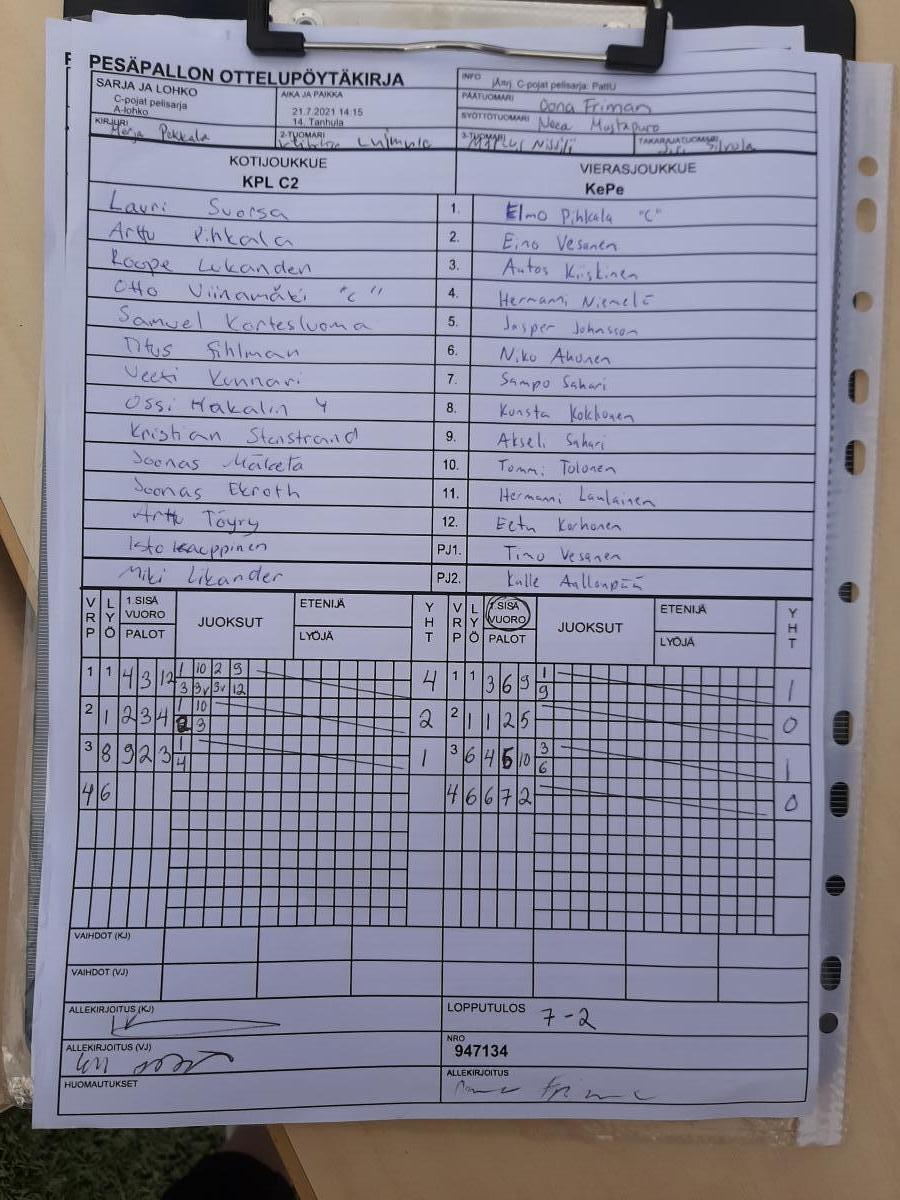 PESÄPALLON OTTELUPÖYTÄKIRJA
SARJA JA LOHKO
C-pojat pelisarja
A-lohko
AIKA JA PAIKKA
21.7.2021 14:15
14. Tanhula
INFO
C-pojat pelisarja: PattU
PÄÄTUOMARI Oona Friman
SYÖTTÖTUOMARI Neea Mustapuro
KIRJURI Merja Pekkala
2-TUOMARI
3-TUOMARI
TAKARAJATUOMARI
KOTIJOUKKUE
KPL C2
VIERASJOUKKUE
KePe
Lauri Suorsa 1. Elmo Pihkala "C"
Arttu Pihkala 2. Eino Vesanen
Roope Lukanden 3. Antos Kiiskinen
Otto Viinamäki "C" 4. Hermanni Niemelä
Samuel Kortesluoma 5. Jasper Johnsson
Titus Sihlman 6. Niko Ahonen
Veeti Kunnari 7. Sampo Sahari
Ossi Hakalin 4 8. Konsta Kokkonen
Kristian Stenstrand 9. Akseli Sahari
Joonas Mäkelä 10. Tommi Tolonen
Joonas Ekroth 11. Hermanni Laulainen
Arttu Töyry 12. Eetu Korhonen
PJ1. Timo Vesanen
Miki Likander PJ2. Kalle Aallonpää
VRP LYÖ 1.SISÄ VUORO PALOT JUOKSUT ETENIJÄ LYÖJÄ YHT VRP LYÖ 1.SISÄ VUORO PALOT JUOKSUT ETENIJÄ LYÖJÄ YHT
1 1 4 3 12 1 10 2 9 4 1 1 3 6 9 1 1
3 3v 3v 12 9
2 1 2 3 4 1 10 2 2 1 1 2 5 0
2 3
3 8 9 2 3 1 1 3 6 4 5 10 3 1
4 6
4 6 4 6 6 7 2 0
VAIHDOT (KJ)
VAIHDOT (VJ)
ALLEKIRJOITUS (KJ)
LOPPUTULOS 7-2
ALLEKIRJOITUS (VJ)
NRO
947134
HUOMAUTUKSET
ALLEKIRJOITUS